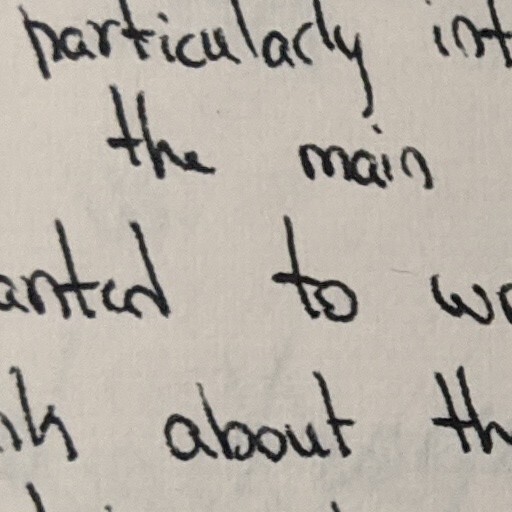 particularly int
the main
anted to wo
nk about th